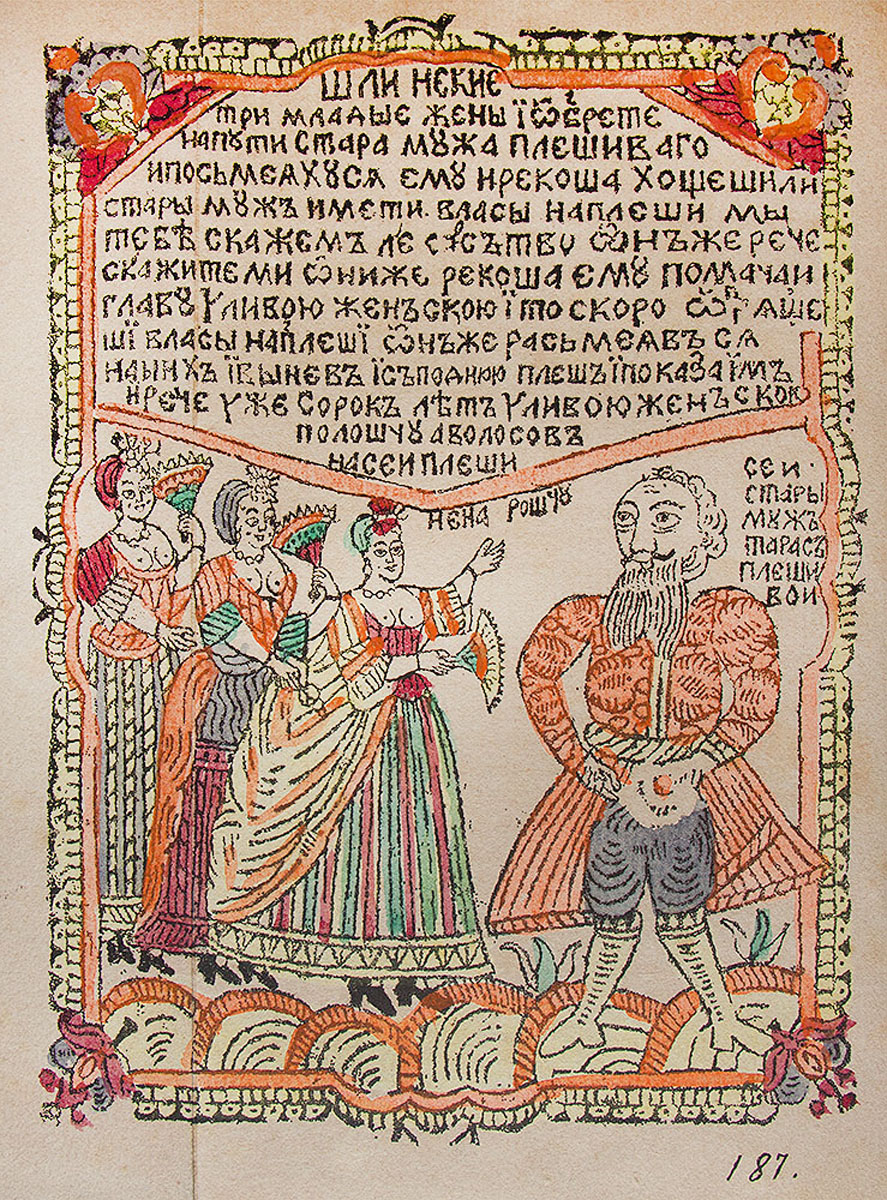 ШЛИ НЕКИЕ
ТРИ МЛАДЫЕ ЖЕНЫ Ї ѾБРЕТЕ
НАПУТИ СТАРА МУЖА ПЛЕШИВАГО
ИПОСЬМЕЯХУСЯ ЕМУ ИРЕКОША ХОЩЕШИЛИ
СТАРЫ МУЖЪ ИМЕТИ ВЛАСЫ НАПЛЕШИ МЫ
ТЕБѢ СКАЖЕМЪ ѠНЪЖЕ РЕЧЕ
СКАЖИТЕМИ ѠНИЖЕ РЕКОША ЕМУ ПОМАЧАИ
ГЛАВУ УЛИВОЮ ЖЕНЪСКОЮ Ї ТО СКОРО
ШЇ ВЛАСЫ НАПЛЕШЇ ѠНЪЖЕ РАСЬМЕЯВЪСЯ
НАНИХЪ ЇВЫНЕВЪ ПЛЕШЪ ЇПОКАЗА ЇМЪ
ИРЕЧЕ УЖЕ СОРОКЪ ЛѢТЪ УЛИВОЮ ЖЕНЪСКОЮ
ПОЛОЩУ АВОЛОСОВЪ
НАСЕИ ПЛЕШИ
НЕНА РОЩУ
СЕИ
СТАРЫ
МУЖЪ
ТАРАСЪ
ПЛЕШИ
ВОИ
187.